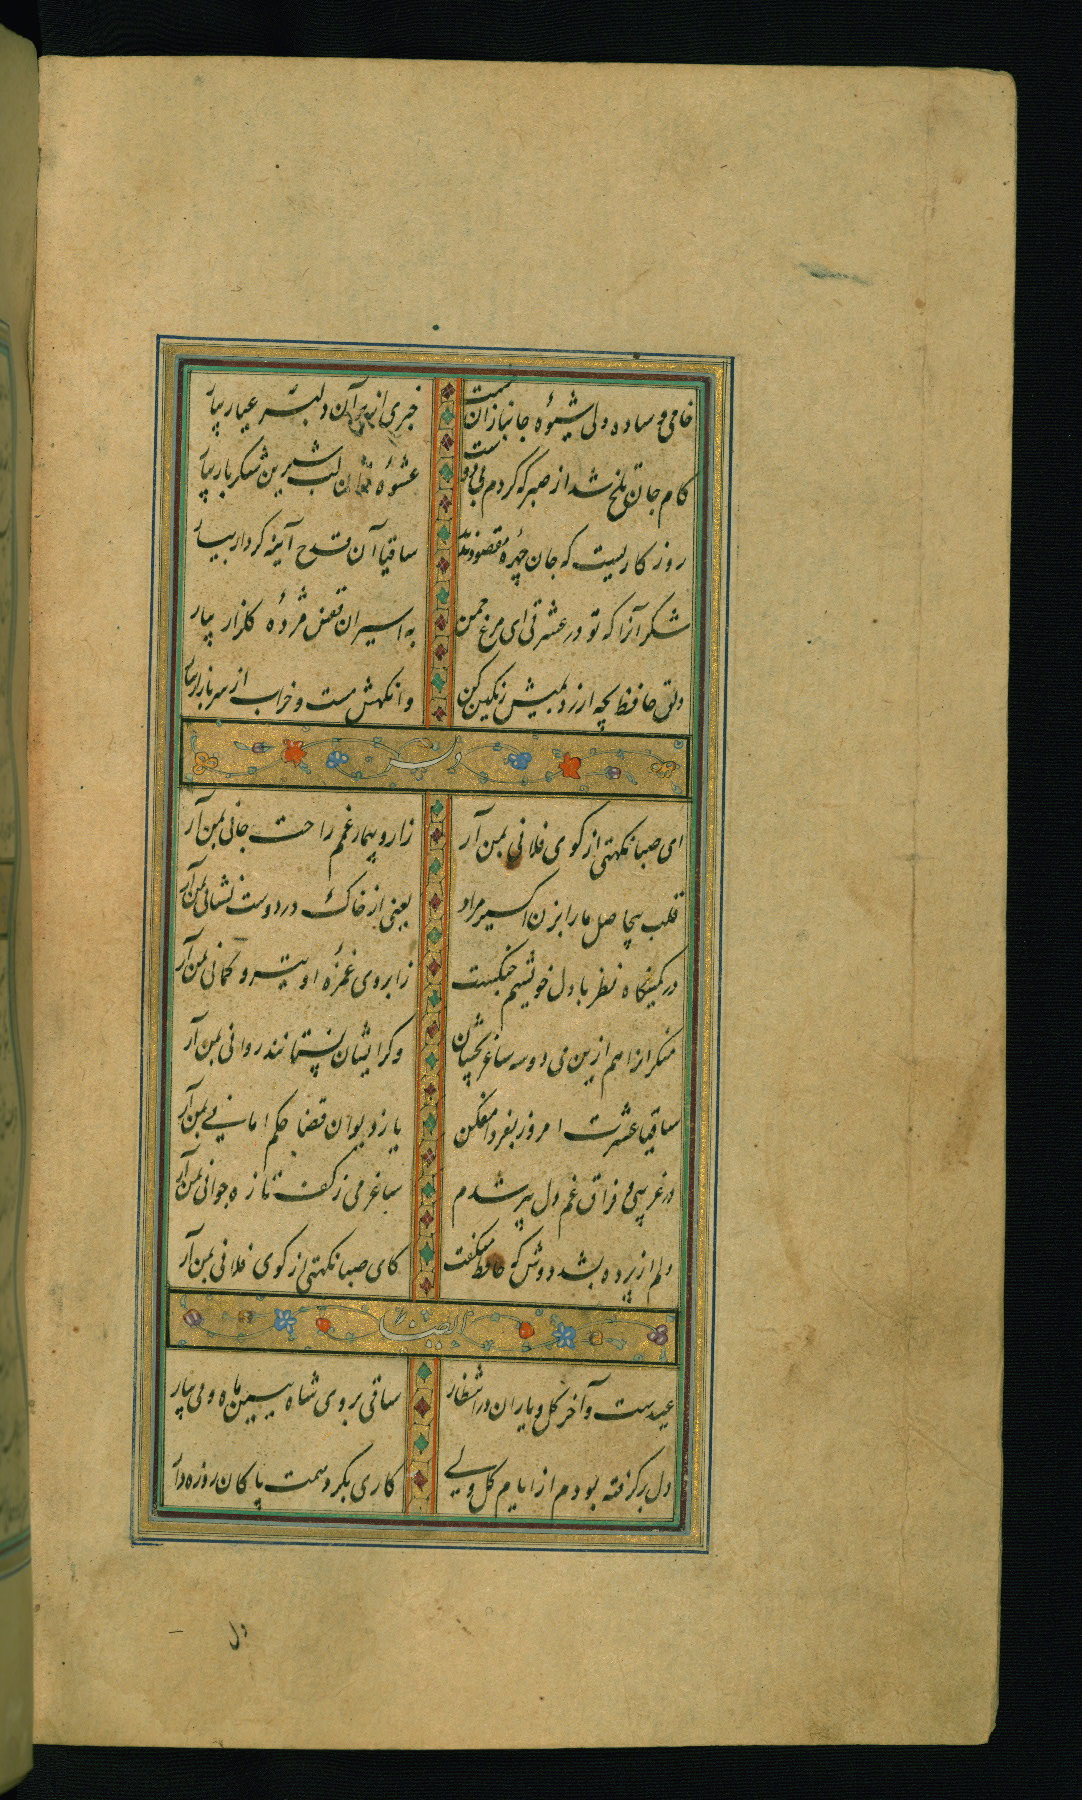 خامی و ساده دلی شیوهٔ جانبازان نیست خبری از بر آن دلبر عیار بیار
کام جان تلخ شد از صبر که کردم بی دوست عشوهٔ زان لب شیرین شکر بار بیار
روزکاریست که جان چهرهٔ مقصود ندید ساقیا آن قدح آینه کردار بیار
شکر آنرا که تو در عشرتی ای مرغ چمن به اسیران قفس مژدهٔ کلزار بیار
دلق حافظ بچه ارزد بمیش رنکین کن وانکهش مست و خراب از سر بازار بیار
وله
ای صبا نکهتی از کوی فلانی بمن آر زار و بیمار غمم راحت جانی بمن آر
قلب بیحاصل ما را بزن اکسیر مراد یعنی از خاک در دوست نشانی بمن آر
در کمینکاه نظر با دل خویشم جنکست ز ابروی غمزهٔ او تیر و کمانی بمن آر
منکرانرا هم ازین می دو سه ساغر بچشان وکر ایشان نستانند روانی بمن آر
ساقیا عشرت امروز بفردا مفکن یا ز دیوان قضا حکم امانی بمن آر
در غریبی و فراق غم دل پیر شدم ساغر می ز کف تازه جوانی بمن آر
دلم از پرده بشد دوش که حافظ میکفت کای صبا نکهتی از کوی فلانی بمن آر
ایضا
عیدست و آخر کل و یاران در انتظار ساقی بروی شاه ببین ماه و می بیار
دل بر کرفته بودم از ایام کل ولی کاری بکرد همت پاکان روزه دار
دل